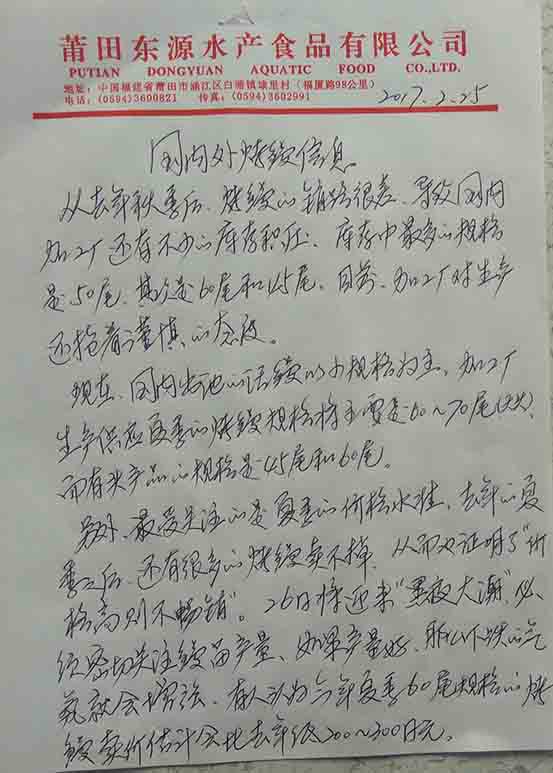 莆田东源水产食品有限公司
PUTIAN DONGYUAN AQUATIC FOOD CO.,LTD.
地址：中国福建省莆田市涵江区白塘镇埭里村（福厦路98公里）
电话：(0594)3600821 传真：(0594)3602991
2017.2.25
国内外烤鳗信息
从去年秋季后、烤鳗的销路很差、导致国内
加工厂还有不少的库存积压、库存中最多的规格
是50尾、其次是60尾和45尾。目前、加工厂对生产
还抱着谨慎的态度。
现在、国内出池的活鳗以小规格为主、加工厂
生产供应夏季的烤鳗规格将主要是60～70尾
而有头产品的规格是45尾和60尾。
另外、最受关注的是夏季的价格水准、去年的夏
季之后、还有很多的烤鳗卖不掉、从而又证明了“价
格高则不畅销”。26日将迎来“黑夜大潮”、必
须密切关注鳗苗产量、如果产量好、那么下跌的气
氛就会增强、有人认为今年夏季60尾规格的烤
鳗卖价估计会比去年低200～300日元。